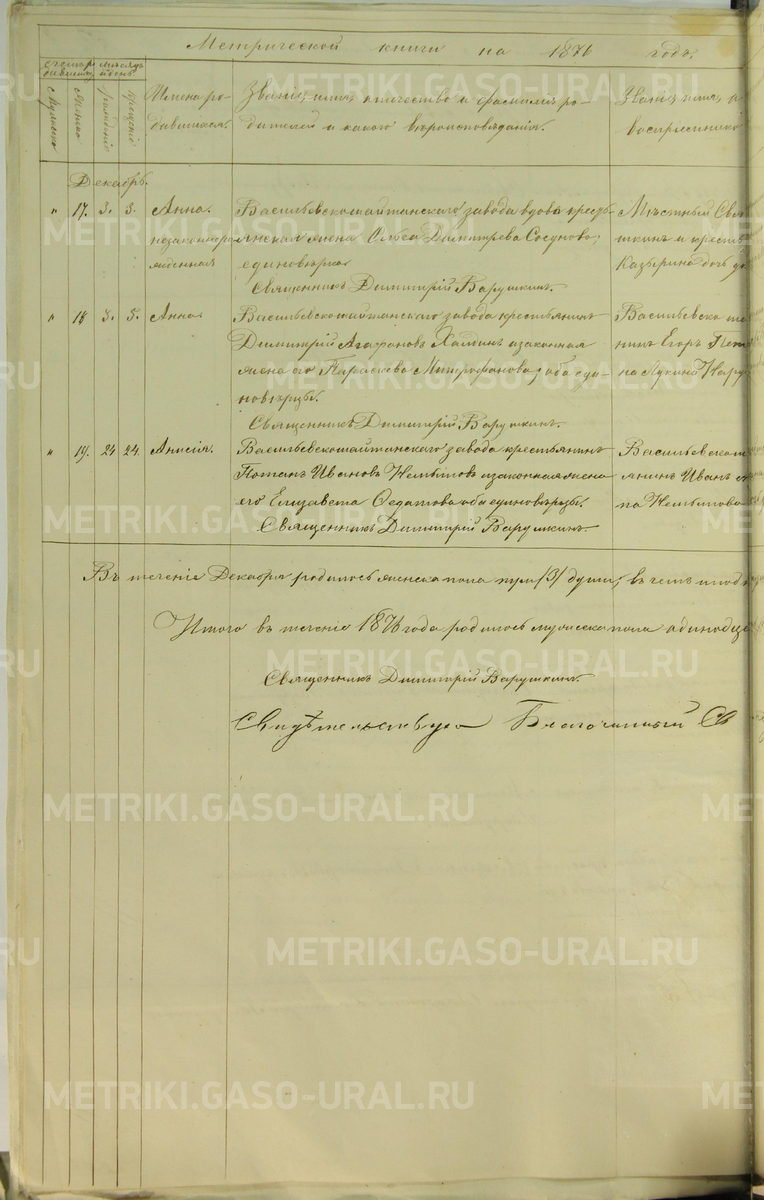 Метрической книги на 1876 годъ.
Мужеска
Женска
рожденія
крещенія
Имена ро-
дившихся.
Званіе, имя, отчество и фамилія ро-
дителей и какого вѣроисповѣданія.
Званіе, имя,
воспріемнико
Декабрь.
" 17. 3. 5. Анна.
незаконноро
жденная
Васильевскошайтанскаго завода вдова кресть-
янская жена Димитрева
единовѣрка
Священникъ Димитрій Варушкинъ.
Мѣстный Свя
шкинъ и крестья
дочь
" 18 3. 5. Анна.
Васильевскошайтанскаго завода крестьянинъ
Димитрій Агафоновъ Халдинъ и законная
жена его Параскева Митрофанова, оба еди-
новѣрцы.
Священникъ Димитрій Варушкинъ.
Васильевско ша
нинъ Егоръ
на Лукина
" 19. 24 24. Анисія.
Васильевскошайтанскаго завода крестьянинъ
Потапъ Ивановъ Немытовъ и законная жена
его Елизавета оба единовѣрцы.
Священникъ Димитрій Варушкинъ.
Васильевскош
янинъ Иванъ
на Немытова
Въ теченіе Декабря родилось женска пола три /3/ души, въ чемъ и под
Итого въ теченіе 1876 года родилось мужеска пола одинадце
Священникъ Димитрій Варушкинъ.
Свидѣтельствую Благочинный Св
METRIKI.GASO-URAL.RU